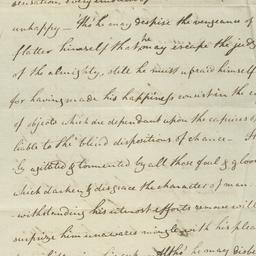 unhappy — Tho' he may despise the vengeance of
flatter himself that he may escape the jud
of the almighty, still he must upraid himself
for having made his happiness consist in the
of objects which are dependant upon the caprices o
liable to the blind dispositions of chance —
ly agitated & tormented by all those foul & gloo
which darken & disgrace the character of man.
withstanding his utmost efforts remorse will
surprize him unawares mingle with his plea
Altho' he may disbe